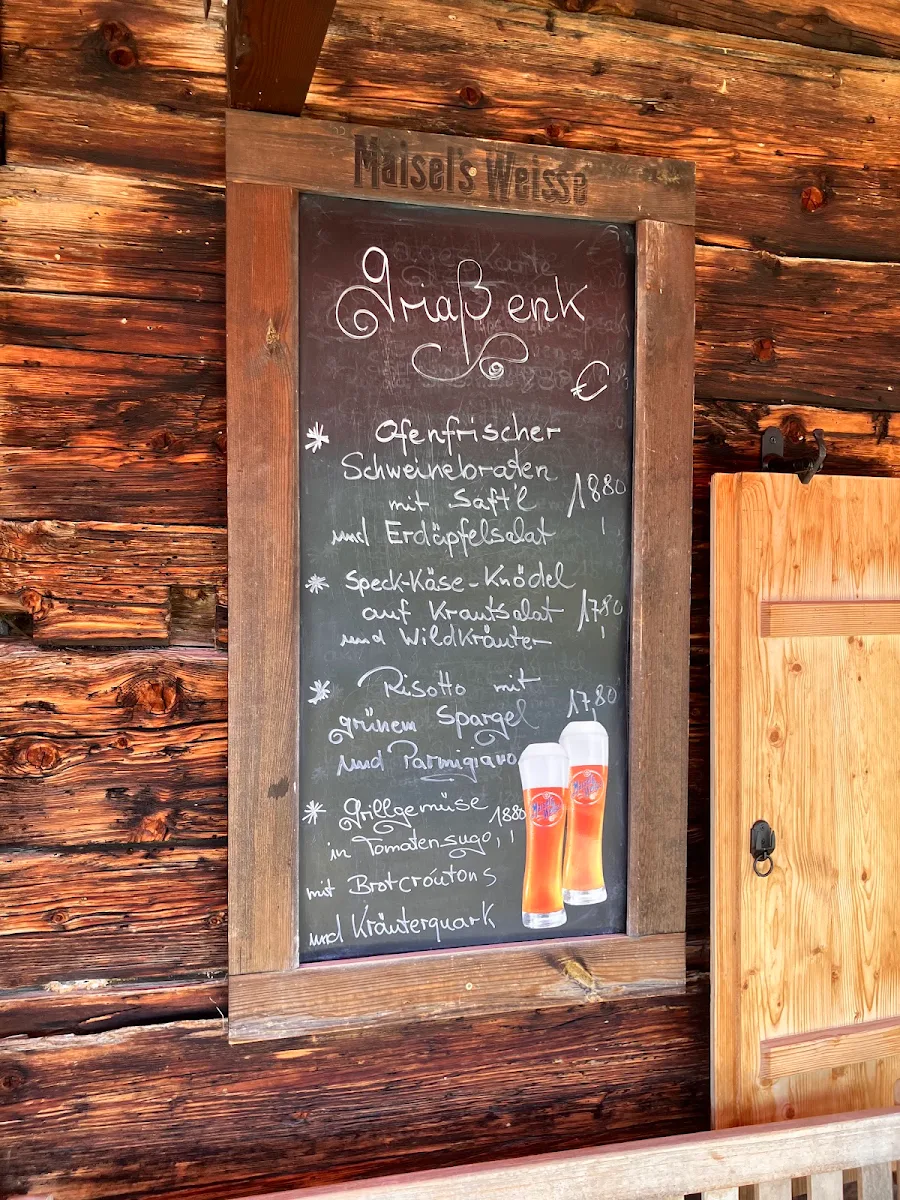 Maisel's Weisse
Griaß enk
€
* Ofenfrischer
Schweinebraten
mit Saft'l 1880
und Erdäpfelsalat
* Speck-Käse-Knödel
auf Krautsalat 17,80
und Wildkräuter
* Risotto mit 17,80
grünem Spargel
und Parmigiano
* Grillgemüse 1880
in Tomatensugo,
mit Brotcroutons
und Kräuterquark